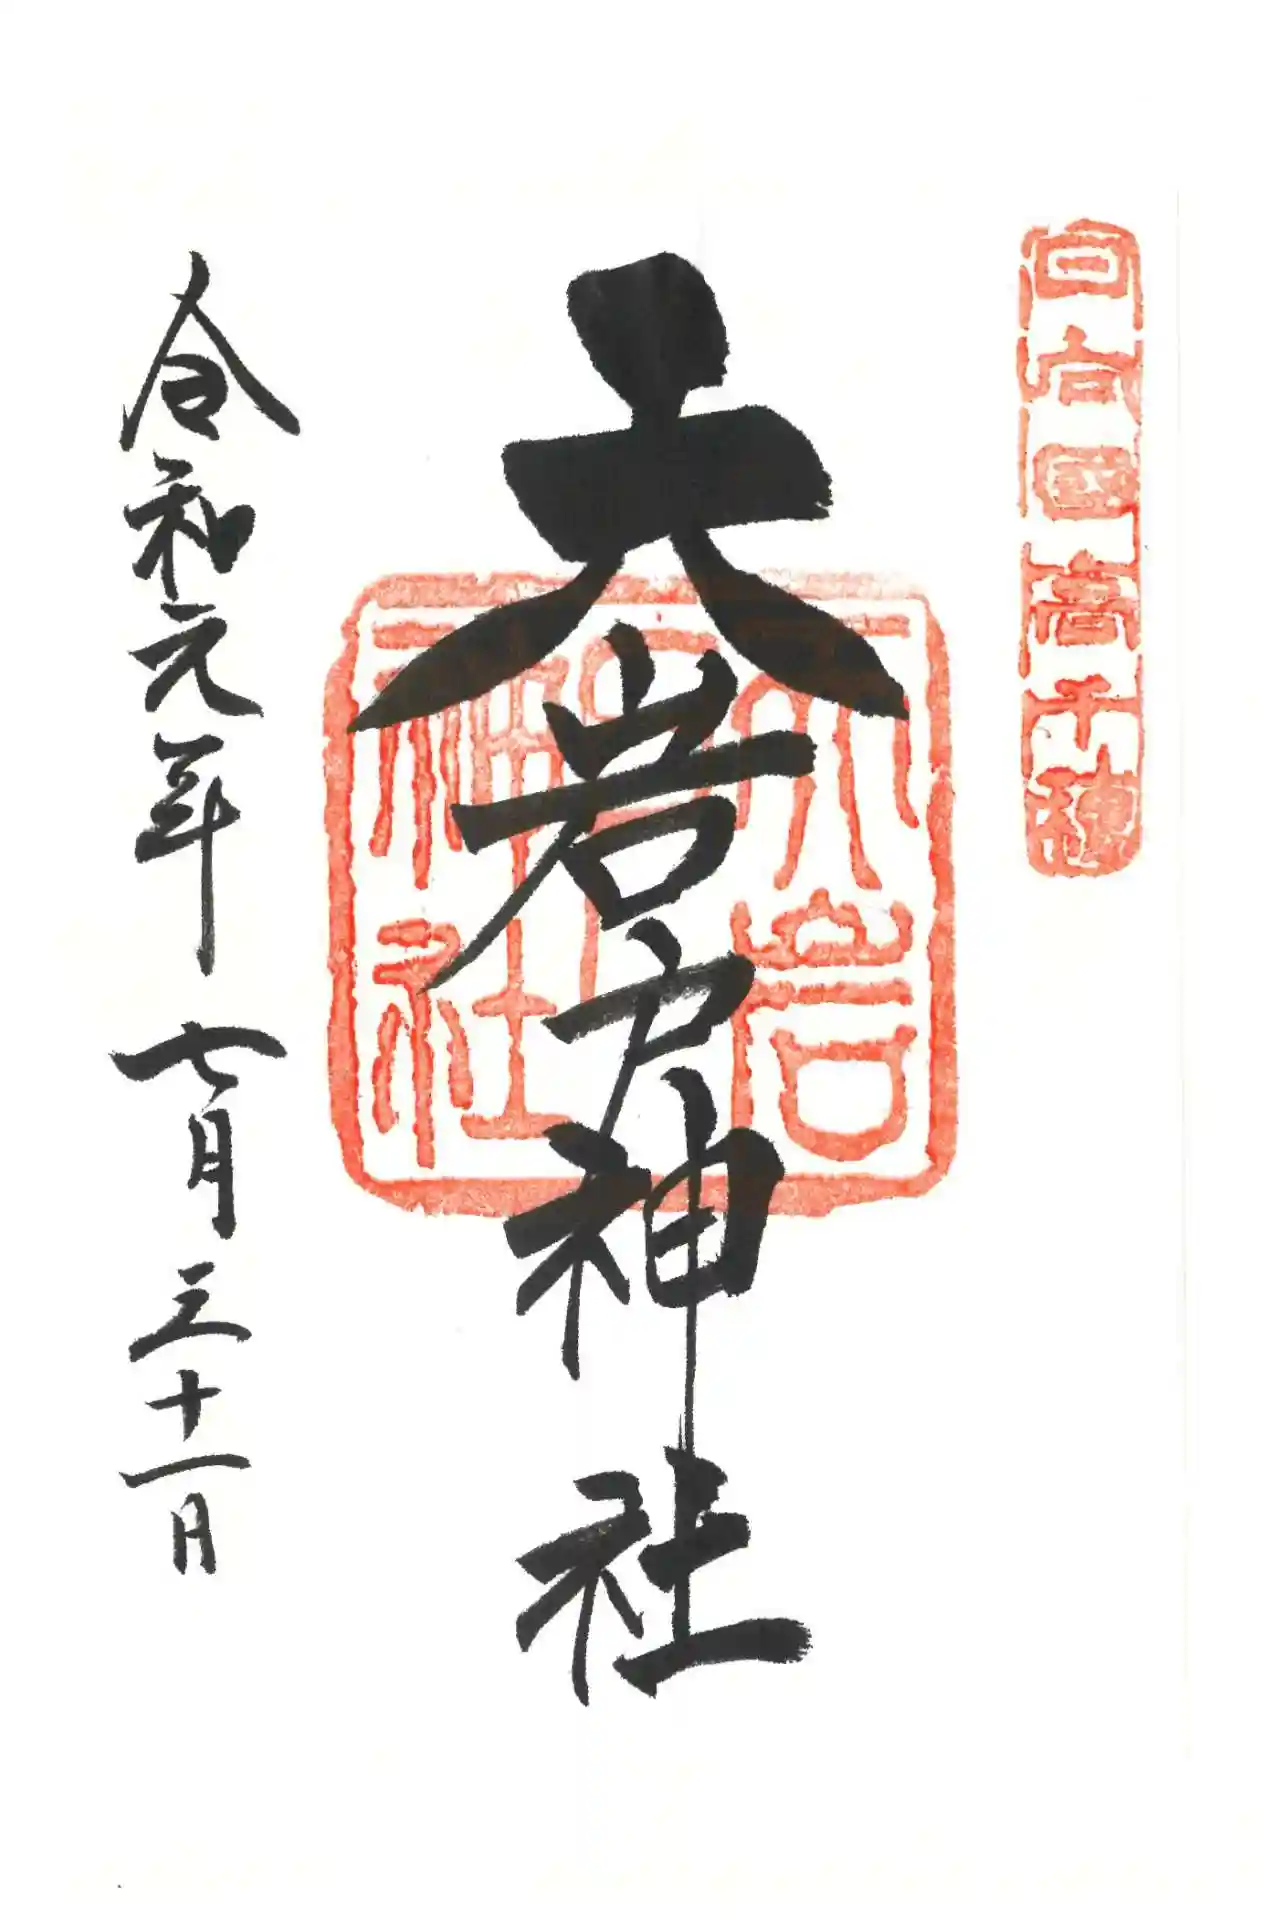 日向國高千穂
天岩戸神社
天岩戸神社
令和元年七月三十一日